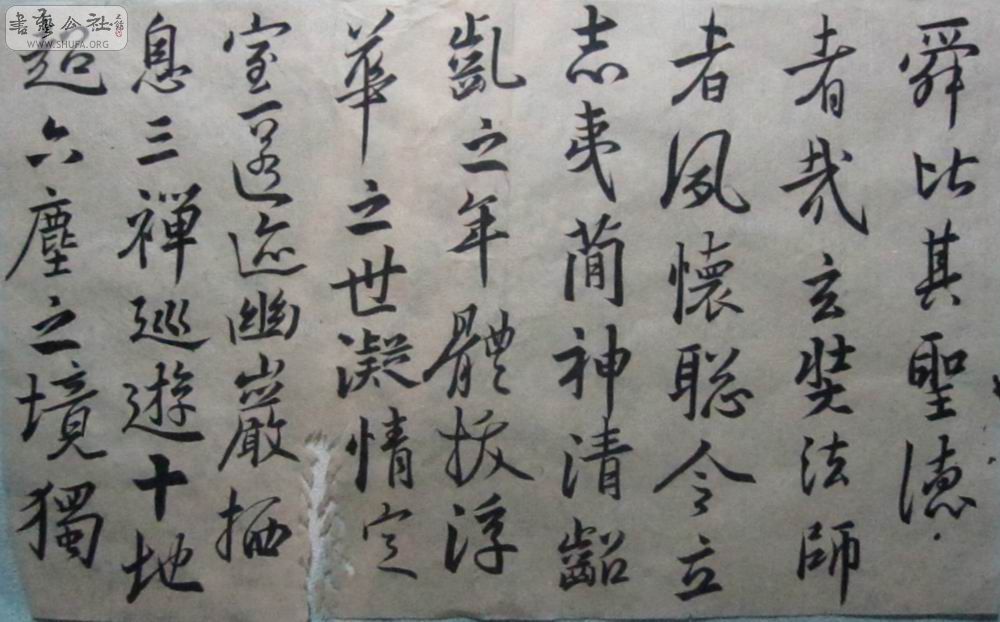 舜比其聖德
者哉玄奘法師
者夙懷聰令立
志夷簡神清齠
齔之年體拔浮
華之世凝情定
室匿迹幽巖栖
息三禪巡遊十地
超六塵之境獨
書藝公社
WWW.SHUFA.ORG